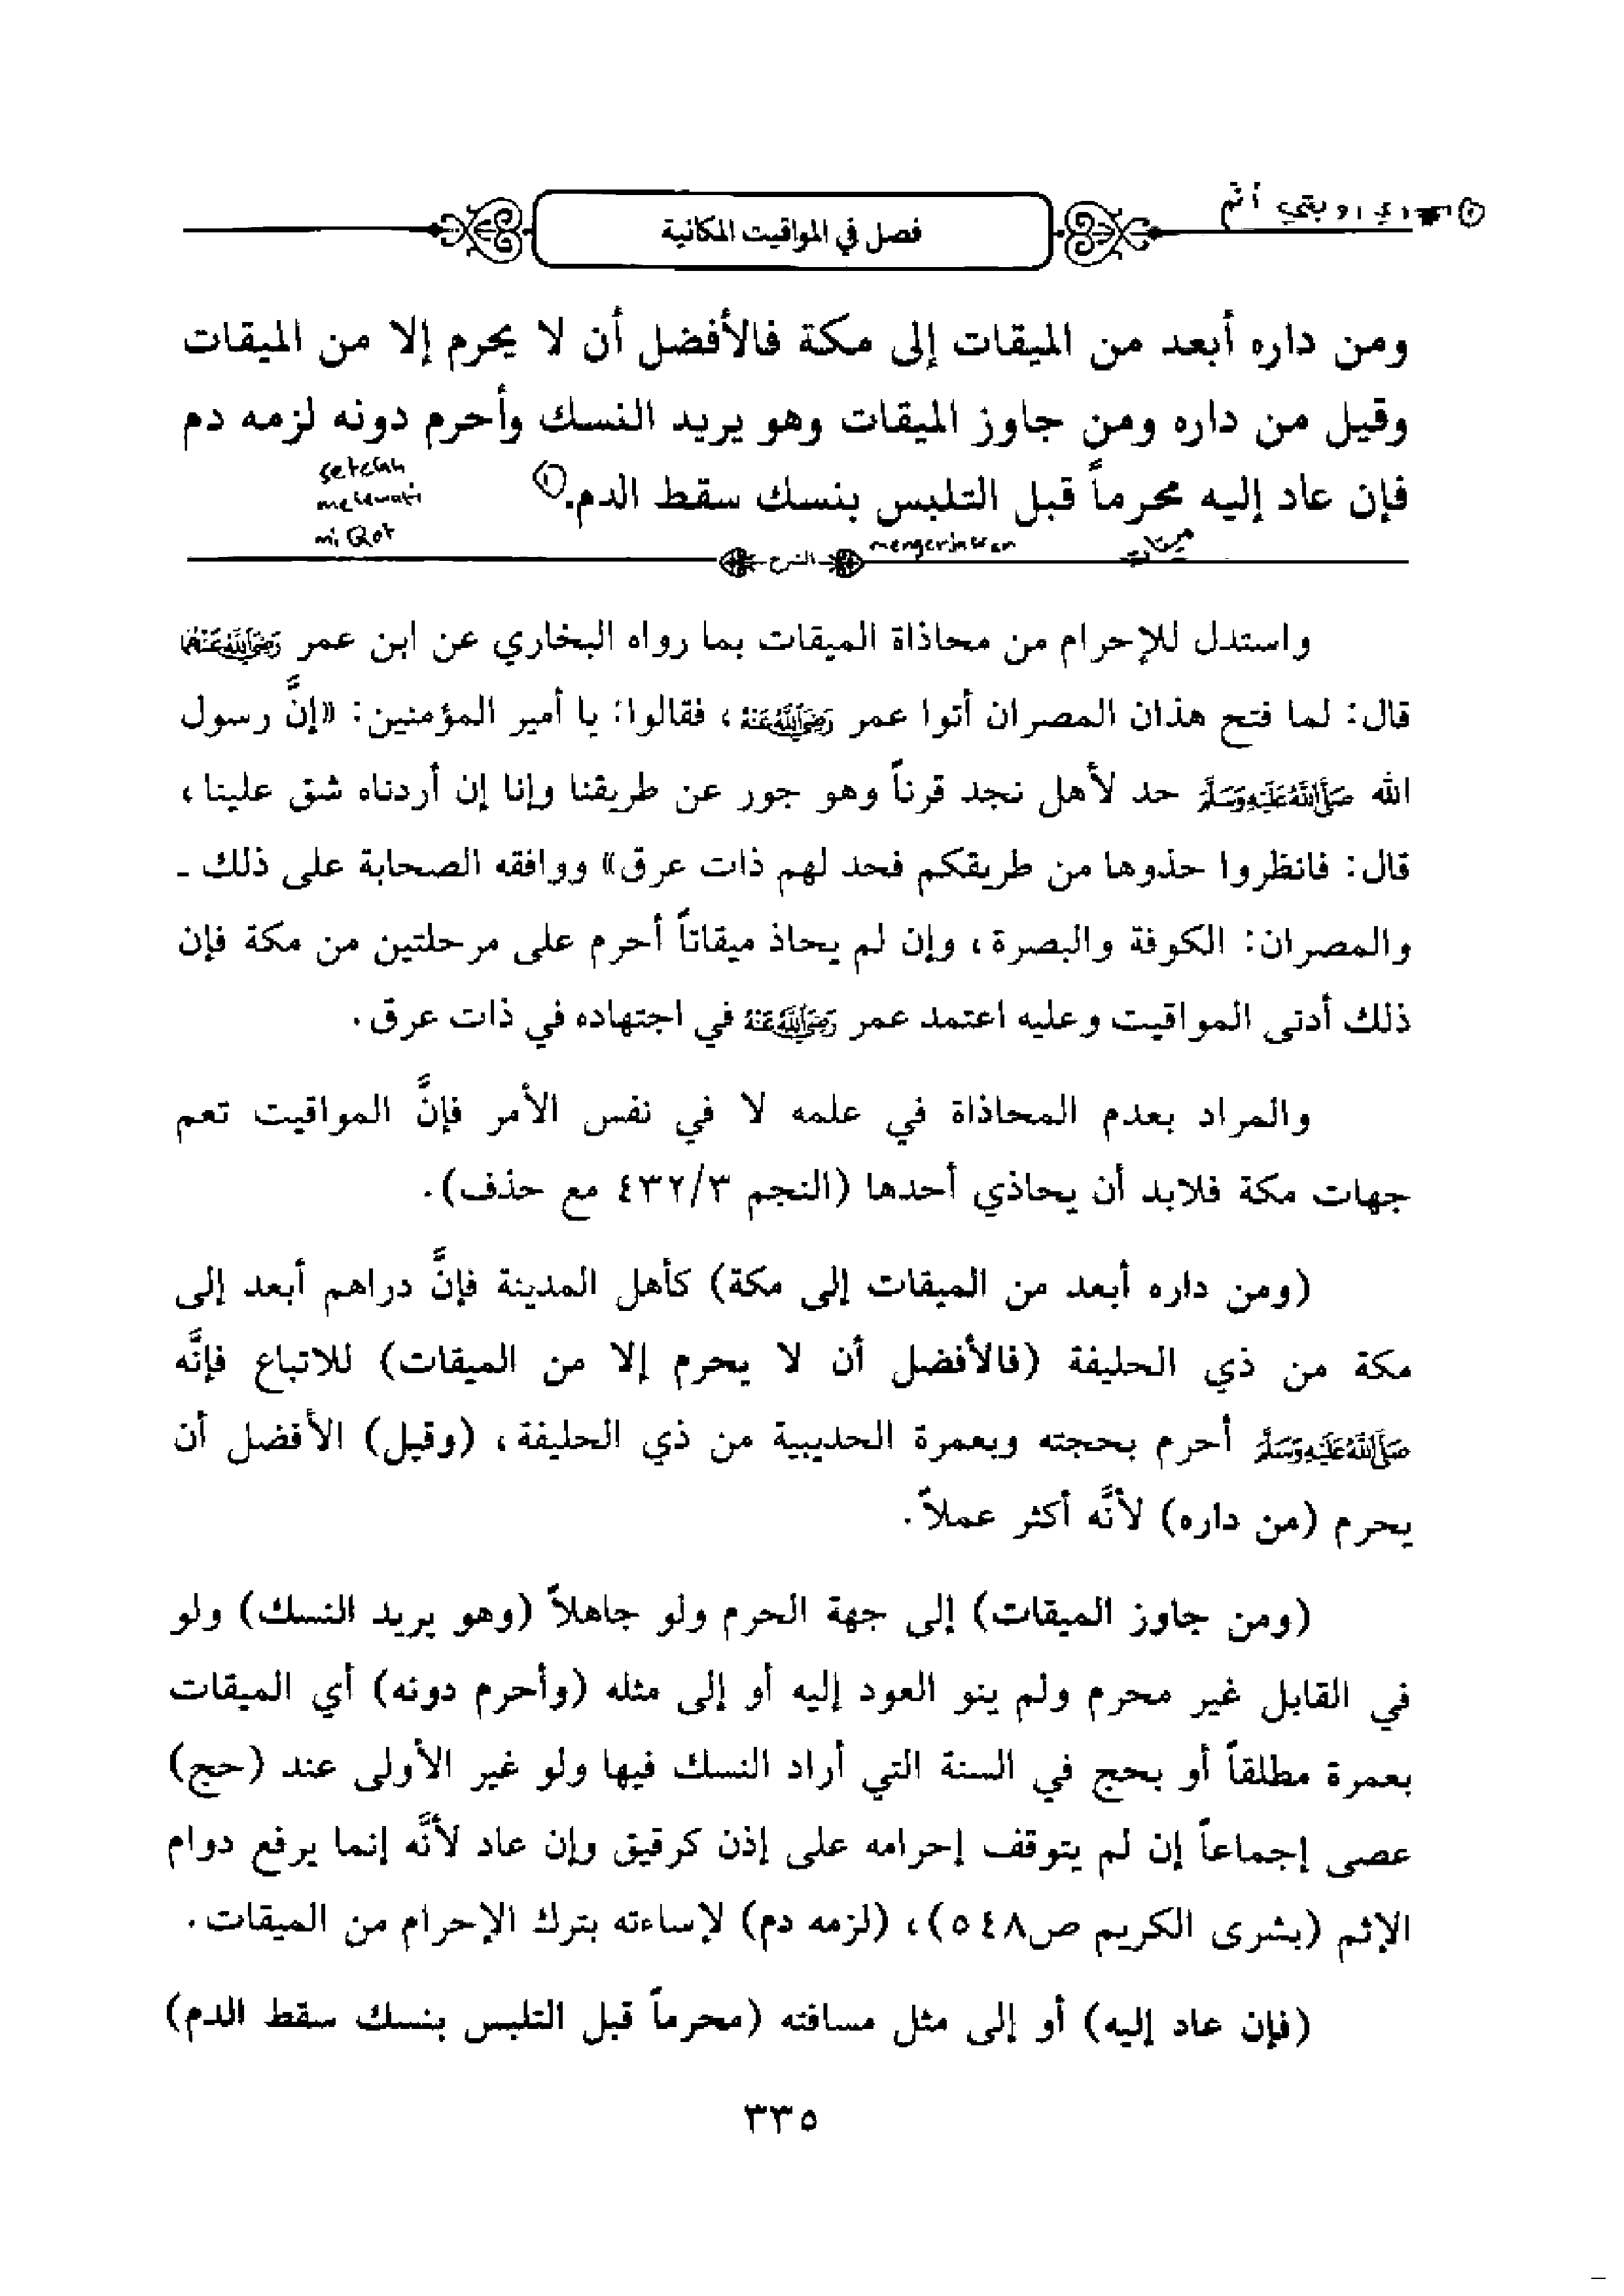 فصل في المواقيت المكانية
ومن داره أبعد من الميقات إلى مكة فالأفضل أن لا يحرم إلا من الميقات
وقيل من داره ومن جاوز الميقات وهو يريد النسك وأحرم دونه لزمه دم
فإن عاد إليه محرماً قبل التلبس بنسك سقط الدم.
setelah
melewati
miQot
mengerjakan
ميقات
الشرح
واستدل للإحرام من محاذاة الميقات بما رواه البخاري عن ابن عمر رَضِيَ اللَّهُ عَنْهُمَا
قال: لما فتح هذان المصران أتوا عمر رَضِيَ اللَّهُ عَنْهُ، فقالوا: يا أمير المؤمنين: «إنَّ رسول
الله صَلَّى اللَّهُ عَلَيْهِ وَسَلَّمَ حد لأهل نجد قرناً وهو جور عن طريقنا وإنا إن أردناه شق علينا،
قال: فانظروا حذوها من طريقكم فحد لهم ذات عرق» ووافقه الصحابة على ذلك ـ
والمصران: الكوفة والبصرة، وإن لم يحاذ ميقاتاً أحرم على مرحلتين من مكة فإن
ذلك أدنى المواقيت وعليه اعتمد عمر رَضِيَ اللَّهُ عَنْهُ في اجتهاده في ذات عرق.
والمراد بعدم المحاذاة في علمه لا في نفس الأمر فإنَّ المواقيت تعم
جهات مكة فلابد أن يحاذي أحدها (النجم ٤٣٢/٣ مع حذف).
(ومن داره أبعد من الميقات إلى مكة) كأهل المدينة فإنَّ دراهم أبعد إلى
مكة من ذي الحليفة (فالأفضل أن لا يحرم إلا من الميقات) للاتباع فإنَّه
صَلَّى اللَّهُ عَلَيْهِ وَسَلَّمَ أحرم بحجته وبعمرة الحديبية من ذي الحليفة، (وقيل) الأفضل أن
يحرم (من داره) لأنَّه أكثر عملاً.
(ومن جاوز الميقات) إلى جهة الحرم ولو جاهلاً (وهو يريد النسك) ولو
في القابل غير محرم ولم ينو العود إليه أو إلى مثله (وأحرم دونه) أي الميقات
بعمرة مطلقاً أو بحج في السنة التي أراد النسك فيها ولو غير الأولى عند (حج)
عصى إجماعاً إن لم يتوقف إحرامه على إذن كرقيق وإن عاد لأنَّه إنما يرفع دوام
الإثم (بشرى الكريم ص٥٤٨)، (لزمه دم) لإساءته بترك الإحرام من الميقات.
(فإن عاد إليه) أو إلى مثل مسافته (محرماً قبل التلبس بنسك سقط الدم)
٣٣٥